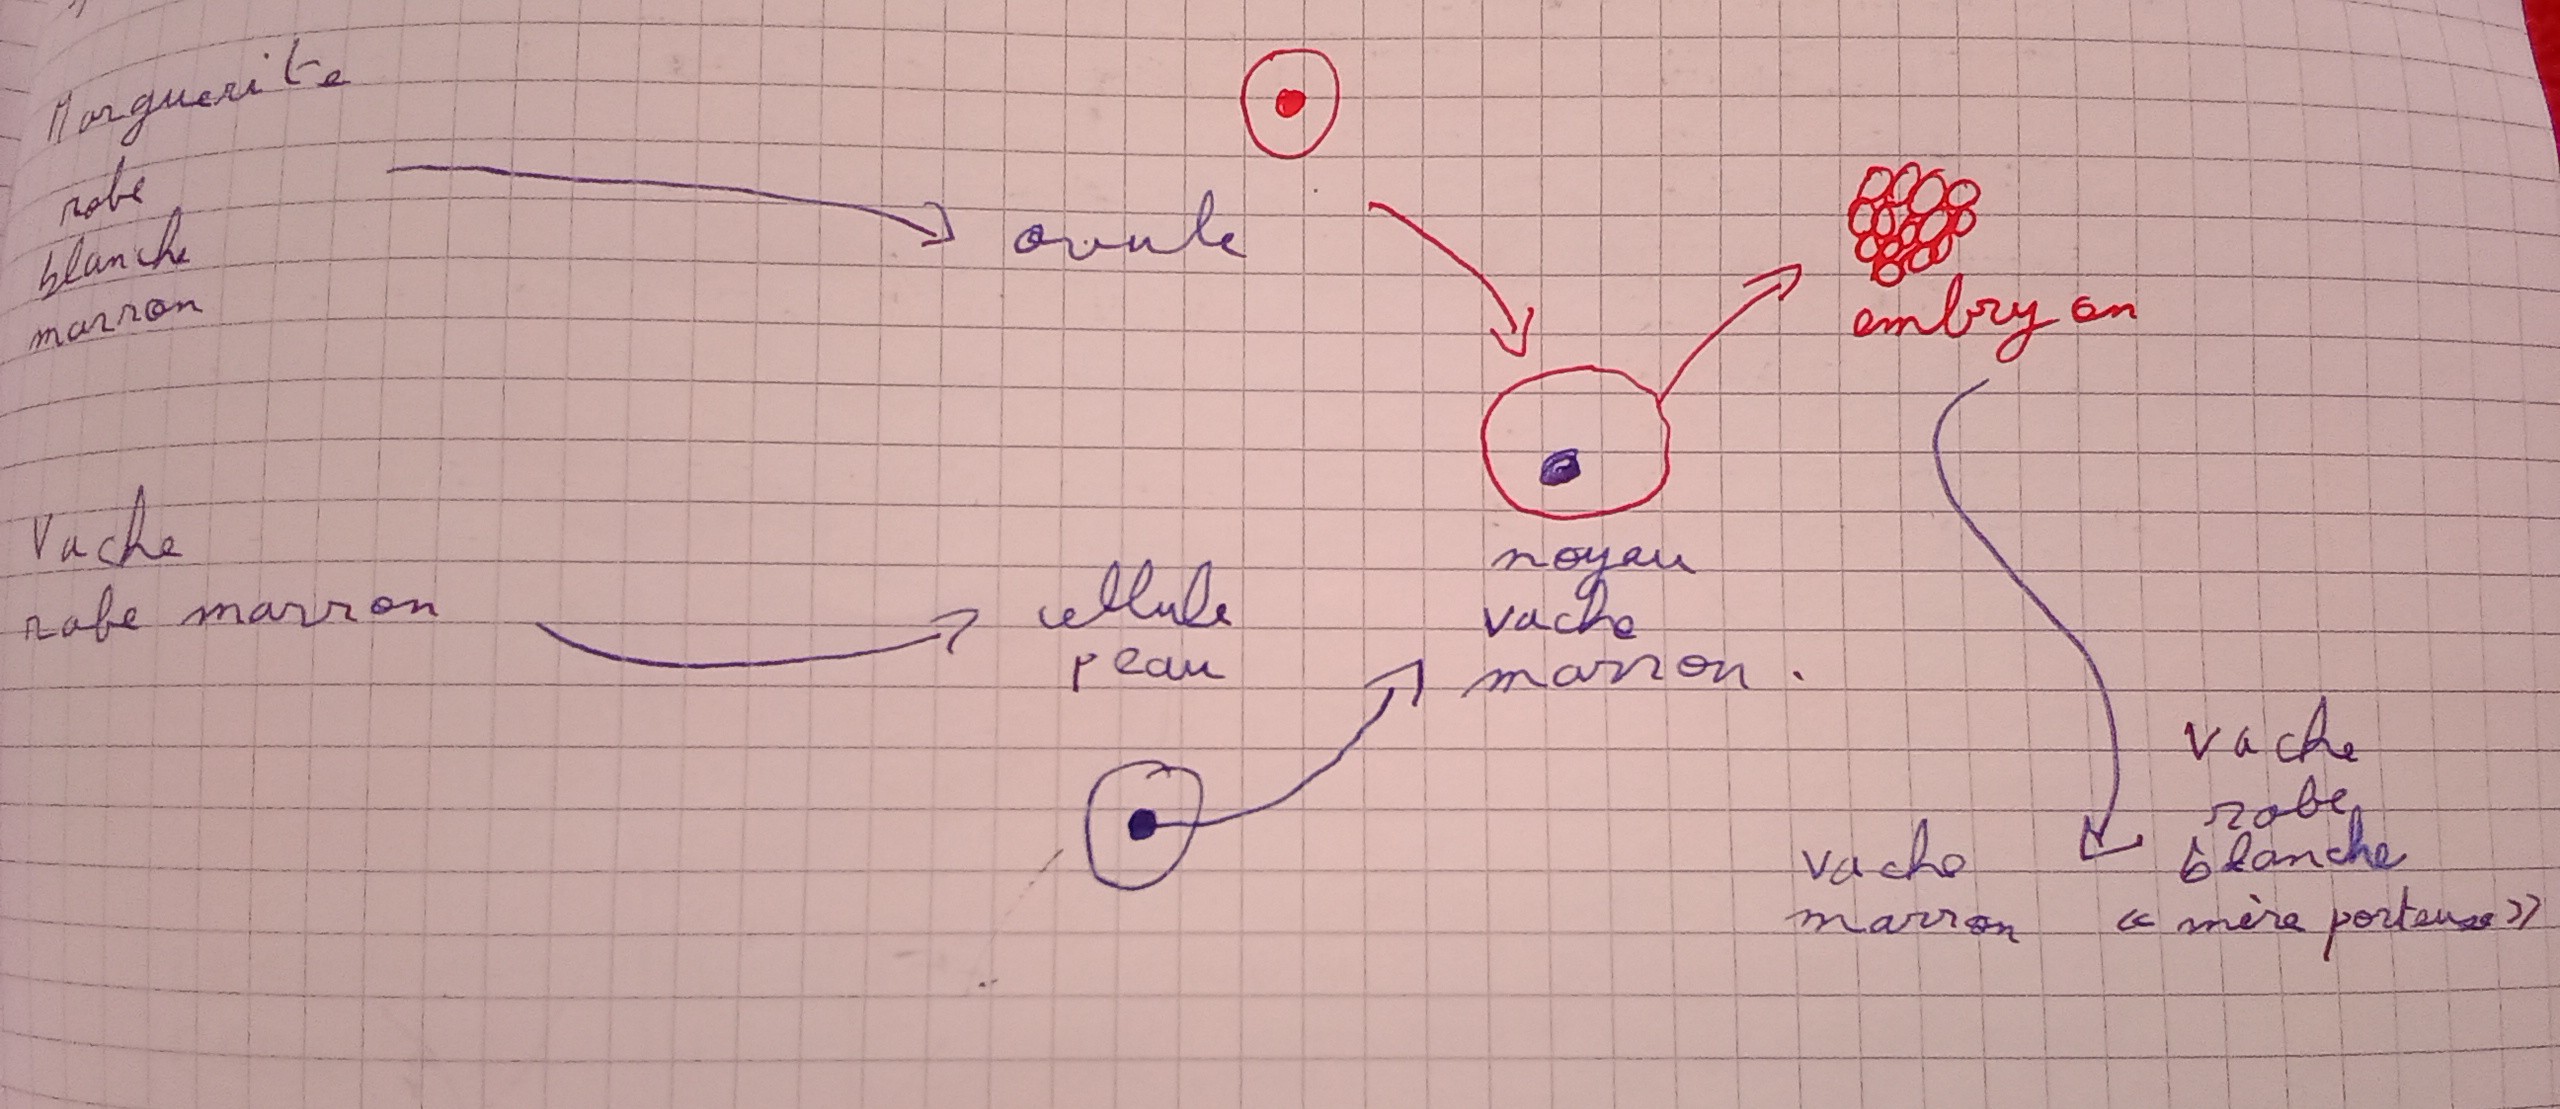 Marguerite
robe
blanche
marron
ovule
embryon
Vache
robe marron
cellule
peau
noyau
vache
marron.
vache
marron
vache
robe
blanche
« mère porteuse »